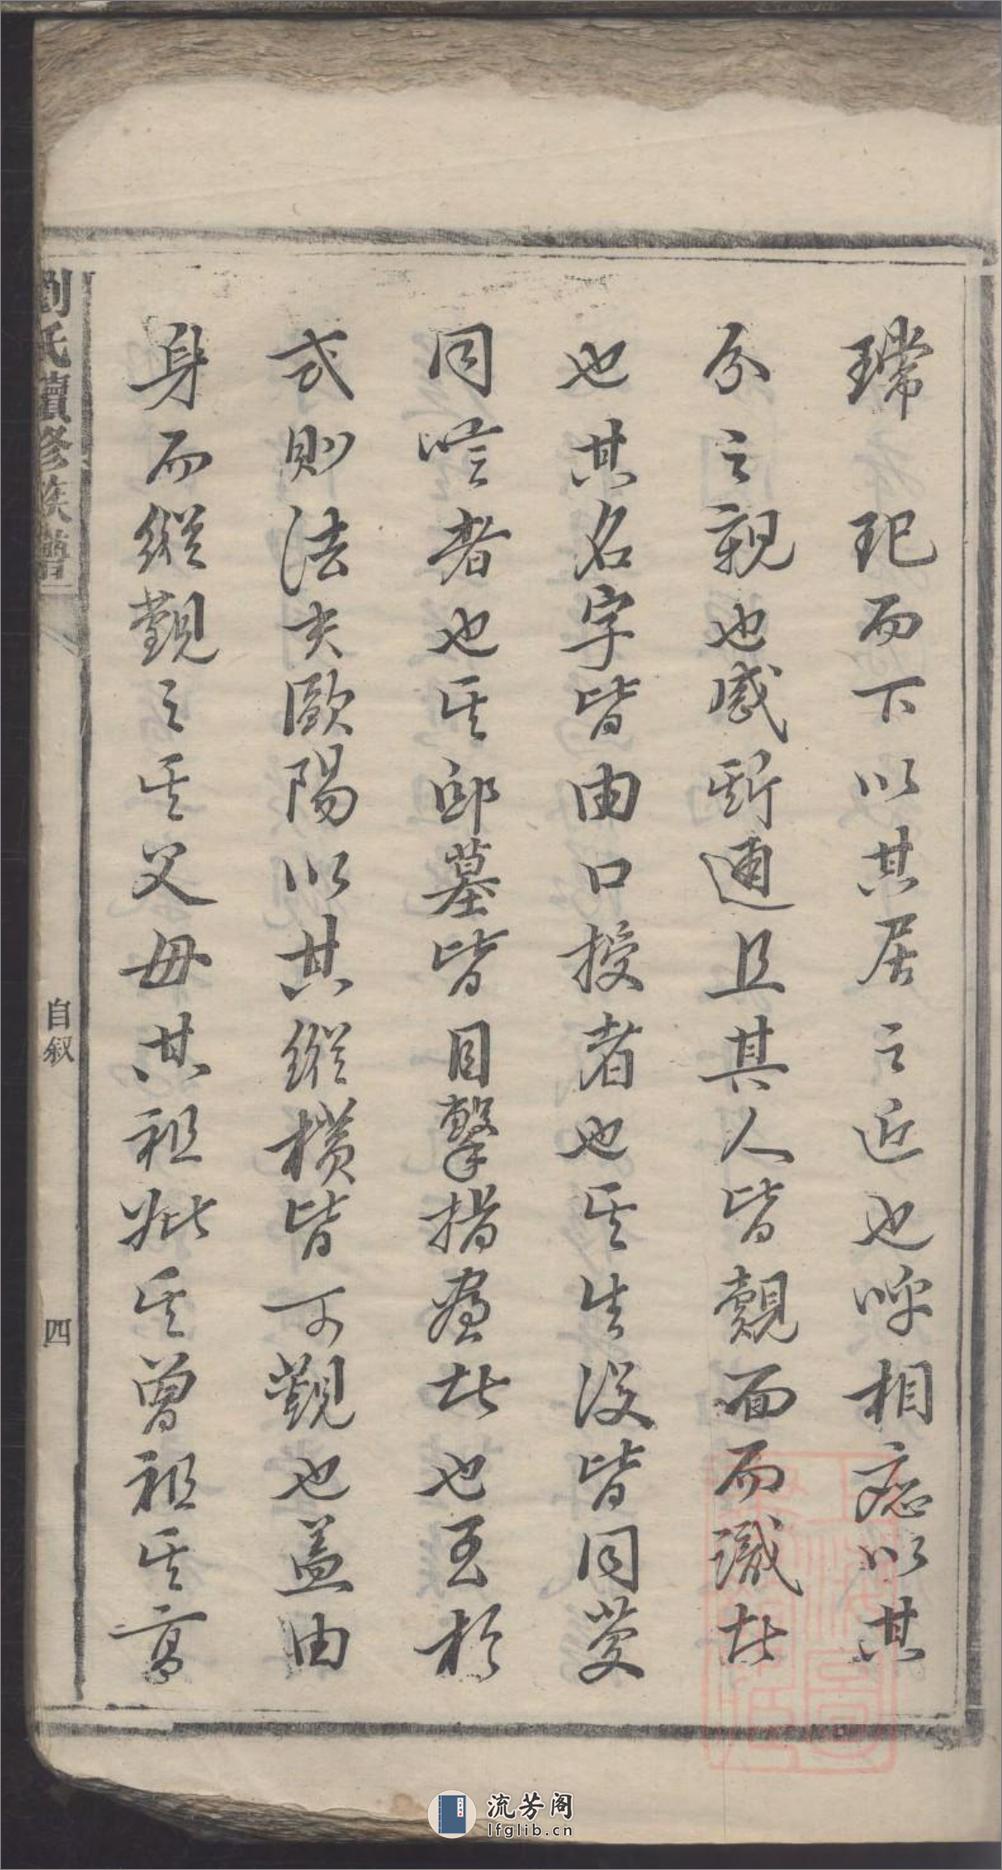 瑺　玘而下以其居之近也呼相應以其
分之親也感斯通且其人皆覿面而識者
也其名字皆由口授者也其生没皆同慶
同唁者也其邱墓皆目擊指畫者也至於
式則法夫歐陽以其縱橫皆可觀也蓋由
身而縱觀之其父母其祖妣其曾祖其高
劉氏續修族譜
自叙
四
流芳阁
lfglib.cn